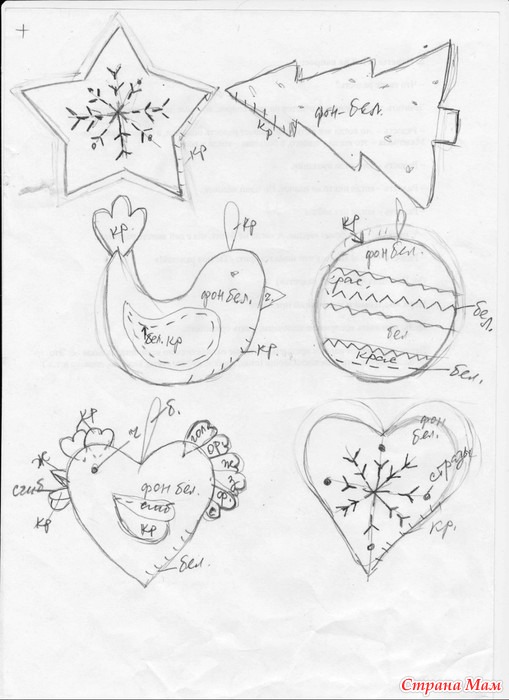 кр
фон-бел.
кр
кр.
кр
фон бел.
бел. кр
кр.
кр
фон бел.
крас.
бел.
бел
крас
бел.
кр
б.
ж
сгиб
кр
гол.
ор.
ж
з
ф.
фон бел.
сгиб
кр
бел.
фон
бел.
стразы
кр.
Страна Мам